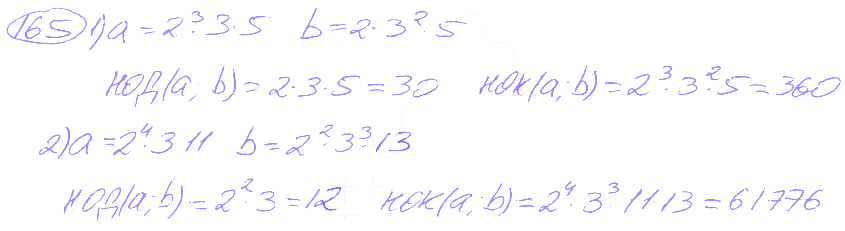 165 1) a = 2³·3·5 b = 2·3²·5
НОД(a; b) = 2·3·5 = 30 НОК(a; b) = 2³·3²·5 = 360
2) a = 2⁴·3·11 b = 2²·3³·13
НОД(a; b) = 2²·3 = 12 НОК(a; b) = 2⁴·3³·11·13 = 61776